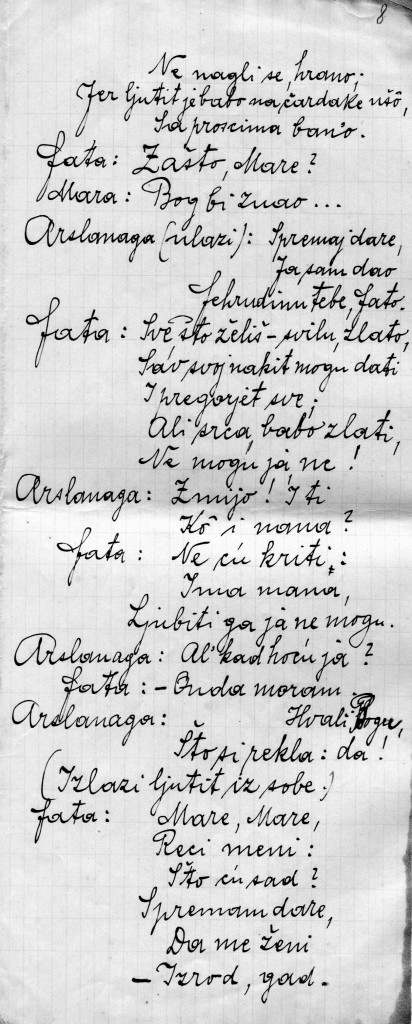 8
Ne nagli se, hrano;
Jer ljutit je babo na čardake ušô,
Sa proscima ban'o.
Fata: Zašto, Mare?
Mara: Bog bi znao...
Arslanaga (ulazi): Spremaj dare,
Ja sam dao
Fehrudinu tebe, Fato.
Fata: Sve što želiš - svilu, zlato,
Sav svoj nakit mogu dati
I pregorjet sve;
Ali srca, babo zlati,
Ne mogu ja, ne!
Arslanaga: Zmijo! I ti
Kô i nama?
Fata: Ne ću kriti:
Ima mana,
Ljubiti ga ja ne mogu.
Arslanaga: Al' kad hoću ja?
Fata: - Onda moram.
Arslanaga: Hvali Bogu,
Što si rekla: da!
(Izlazi ljutit iz sobe.)
Fata: Mare, Mare,
Reci meni:
Što ću sad?
Spremam dare,
Da me ženi
- Izrod, gad.